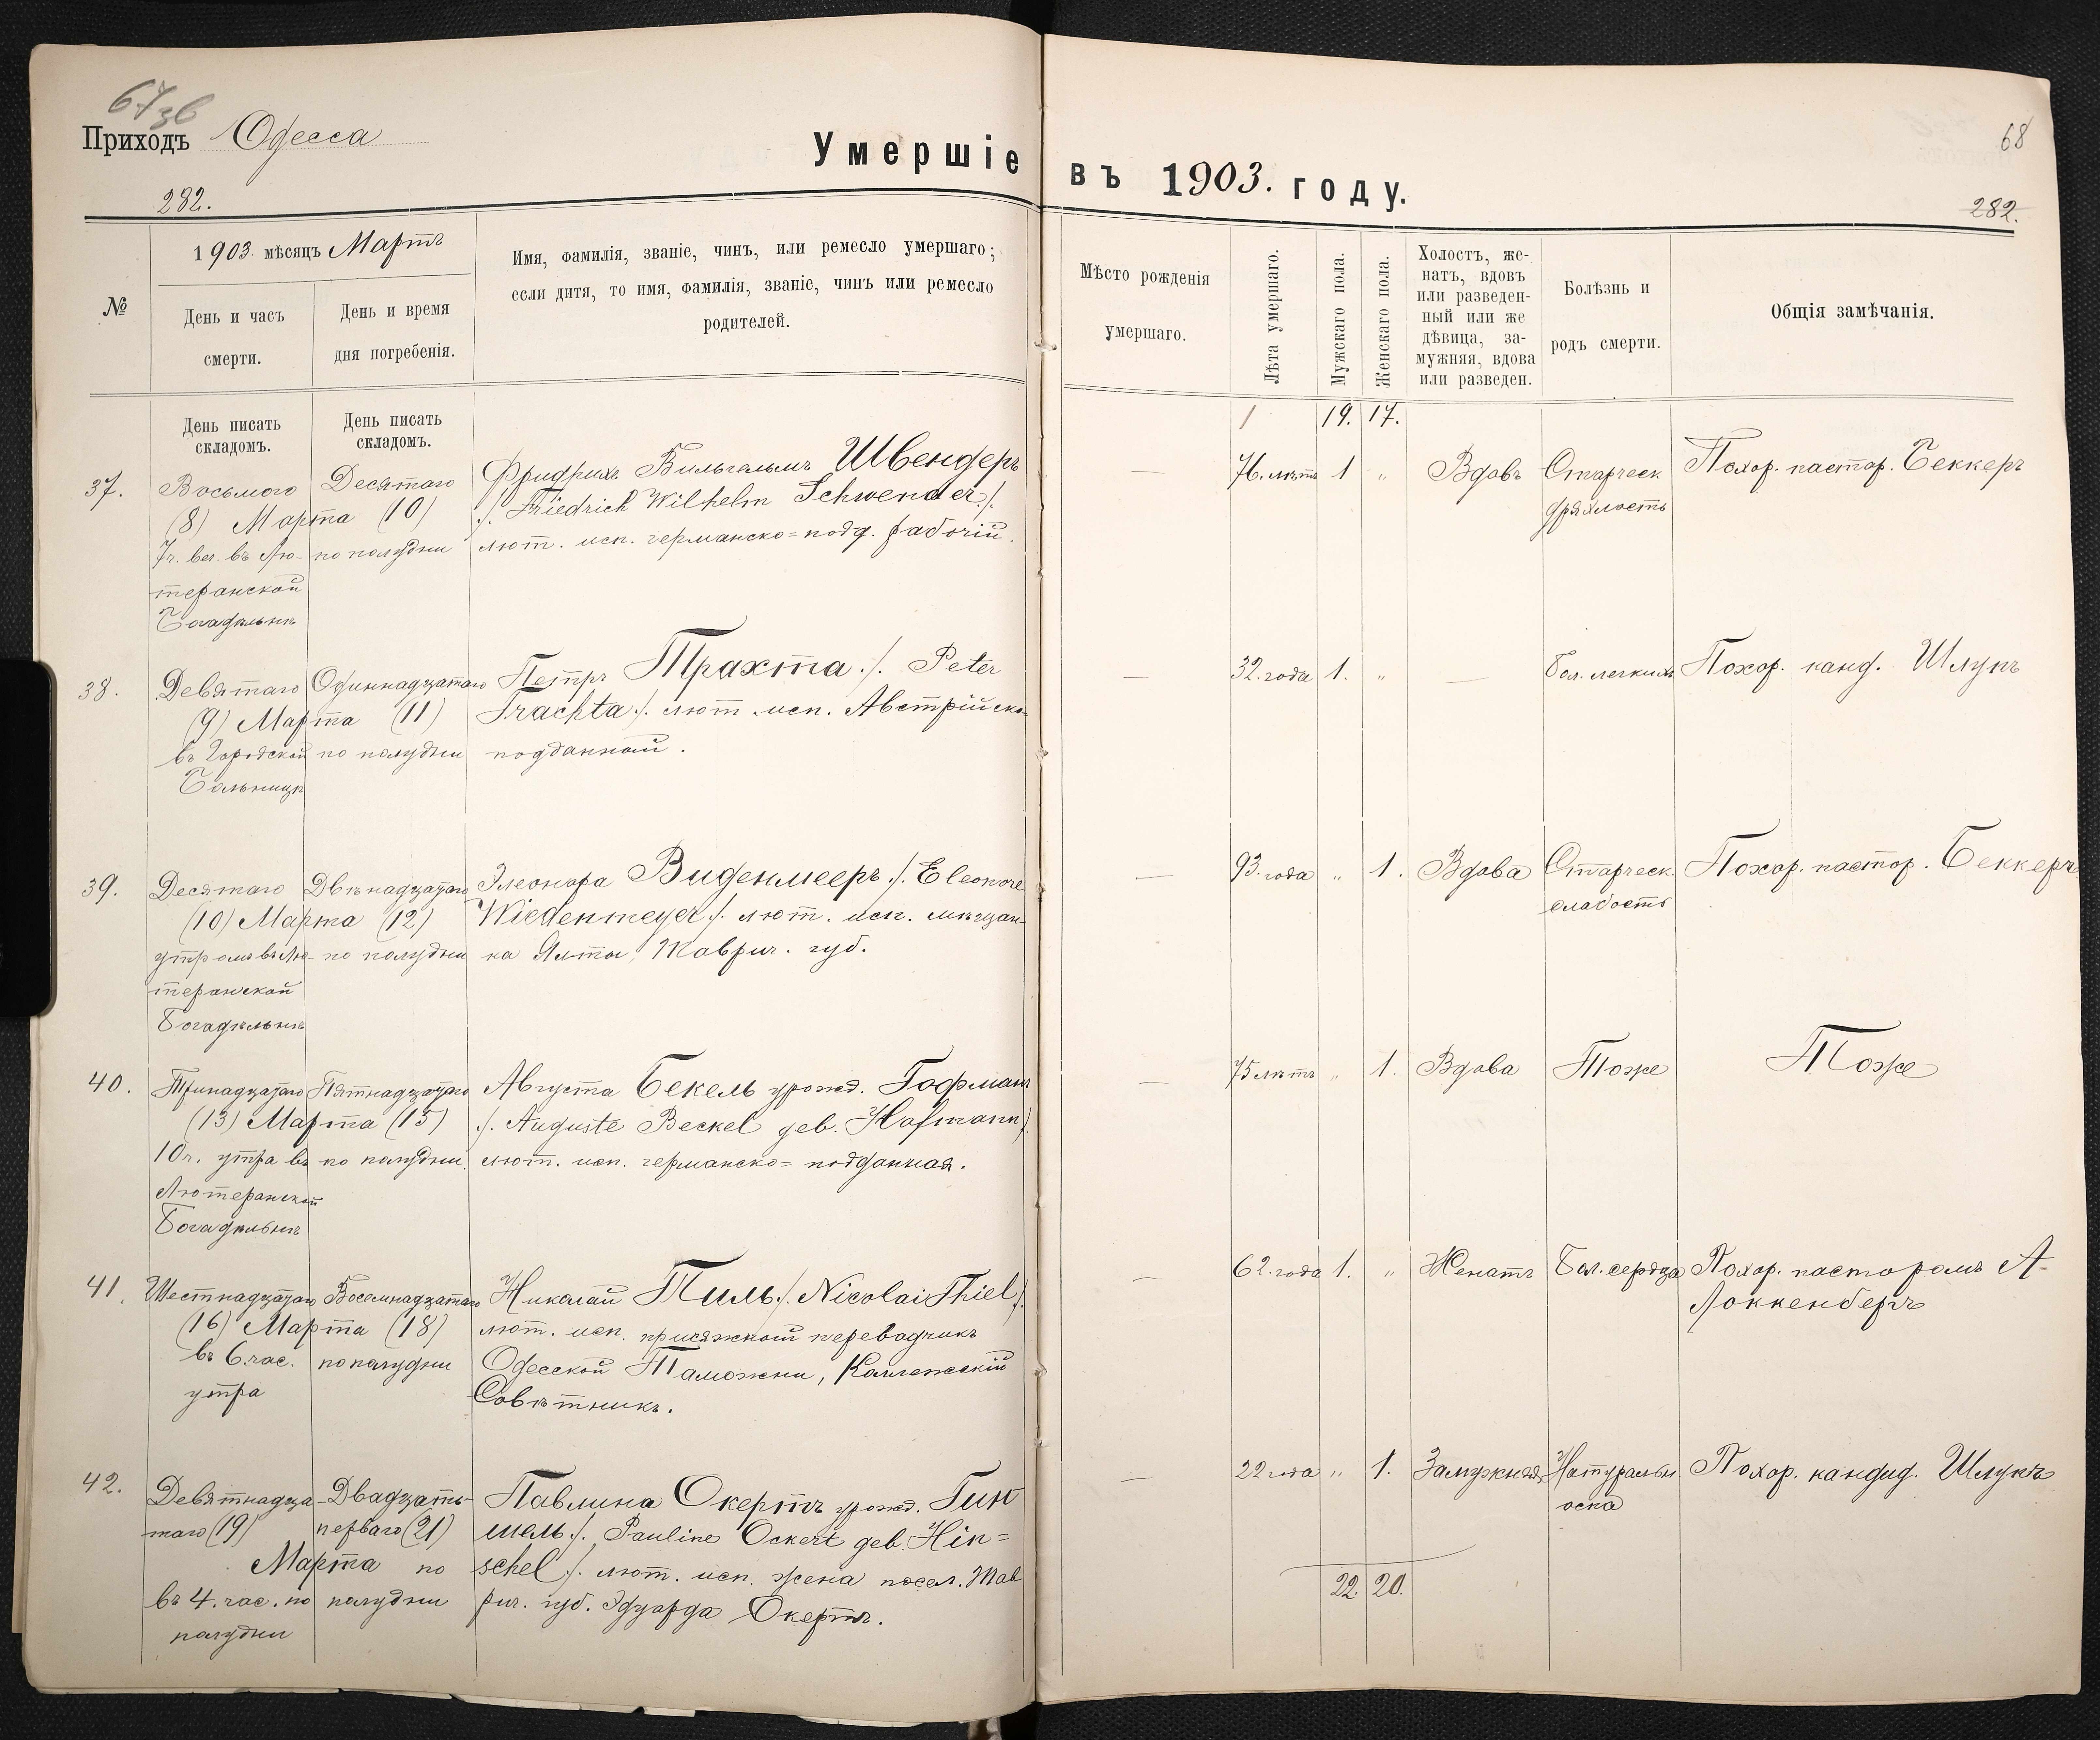 67зв
Приходъ Одесса
Умершіе въ 1903. году.
68
282.
282.
№
1903 мѣсяцъ Мартъ
День и часъ
смерти.
День и время
дня погребенія.
Имя, фамилія, званіе, чинъ, или ремесло умершаго;
если дитя, то имя, фамилія, званіе, чинъ или ремесло
родителей.
Мѣсто рожденія
умершаго.
Лѣта умершаго.
Мужскаго пола.
Женскаго пола.
Холостъ, же-
натъ, вдовъ
или разведен-
ный или же
дѣвица, за-
мужняя, вдова
или разведен.
Болѣзнь и
родъ смерти.
Общія замѣчанія.
День писать
складомъ.
День писать
складомъ.
19. 17.
37.
Восьмого
(8) Марта (10)
7 ч. веч. въ Лю-
теранской
Богадѣльнѣ
Десятаго
по полудни
Фридрихъ Вильгельмъ Швендеръ
/. Friedrich Wilhelm Schwender./.
лют. исп. германско=подд. рабочій.
—
76. лѣтъ
1
"
Вдовъ
Старческ
дряхлость
Похор. пастор. Беккеръ
38.
Девятаго
(9) Марта (11)
въ Городской
Больницѣ
Одиннадцатаго
по полудни
Петръ Трахта ./. Peter
Trachta./. лют. исп. Австрійско-
подданный.
—
32. года
1.
"
—
Бол. легкихъ
Похор. канд. Шлупъ
39.
Десятаго
(10) Марта (12)
утромъ въ Лю-
теранской
Богадѣльнѣ
Двѣнадцатаго
по полудни
Элеонора Виденмееръ ./. Eleonore
Wiedenmeyer ./. лют. исп. мѣщан-
ка Ялты, Таврич. губ.
—
93. года
"
1.
Вдова
Старческ.
слабость
Похор. пастор. Беккеръ
40.
Тринадцатаго
(13) Марта (15)
10 ч. утра въ
Лютеранской
Богадѣльнѣ
Пятнадцатаго
по полудни.
Августа Бекель урожд. Гофманъ
./. Auguste Beckel geb. Hofmann/.
лют. исп. германско=подданная.
—
75 лѣтъ
"
1.
Вдова
Тоже
Тоже
41.
Шестнадцатаго
(16) Марта (18)
въ 6. час.
утра
Восемнадцатаго
по полудни
Николай Тиль ./. Nicolai Thiel/.
лют. исп. присяжной переводчикъ
Одесской Таможни, Коллежскій
Совѣтникъ.
—
62. года
1.
"
Женатъ
Бол. сердца
Похор. пасторомъ А-
Локкенбергъ
42.
Девятнадца-
таго (19)
Марта по
въ 4. час. по
полудни
Двадцать-
перваго (21)
полудни
Павлина Окертъ урожд. Гин
шель ./. Pauline Ockert geb. Hin=
schel ./. лют. исп. жена посел. Тав
рич. губ. Эдуарда Окертъ.
—
22 года
"
1.
Замужняя
Натуральн.
оспа
Похор. кандид. Шлупъ
22. 20.